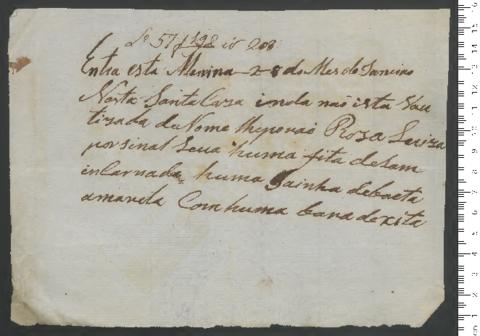 Lº 57 f 198 iº 208
Entra esta Menina 28 do Mes de Janeiro
Nesta Santa Caza inda não ista Bau
tizada de Nome lhe porão Roza Luiza
por sinal Leva huma fita de Lam
incarnada, huma Sainha debaeta
amarela Com huma bara de xita